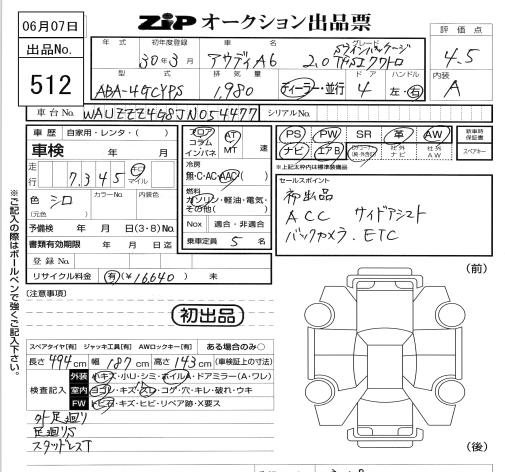 06月07日
出品No.
512
ZIP オークション出品票
評価点
4.5
内装
A
年式 初年度登録 車名 グレード
30年3月 アウディA6 Sラインパッケージ
2.0 TFSIクワトロ
型式 排気量 ドア ハンドル
ABA-4GCYPS 1,980 ディーラー・並行 4 左・右
車台No. WAUZZZ4G8JN054477 シリアルNo.
車歴 自家用・レンタ・( )
車検 年 月
走行 7.345 キロ マイル
色 シロ カラーNo. 内装色
(元色 )
予備検 年 月 日(3・8)No.
書類有効期限 年 月 日迄
登録No.
リサイクル料金 有(¥16,640) 未
フロア コラム インパネ AT MT 速
冷房
無・C・AC・AAC( )
燃料
ガソリン・軽油・電気・その他( )
Nox 適合・非適合
乗車定員 5 名
PS PW SR 革 AW
ナビ エアB 社外ナビ 社外AW
新車時保証書
スペアキー
※上記太枠内は標準装備品
セールスポイント
初出品
ACC サイドアシスト
バックカメラ. ETC
※ご記入の際はボールペンで強くご記入下さい。
(注意事項)
初出品
スペアタイヤ[有] ジャッキ工具[有] AWロックキー[有] ある場合のみ○
長さ 494cm 幅 187cm 高さ 143cm (車検証上の寸法)
検査記入
外装 小キズ・ハリ・シミ・ホイルA・ドアミラー(A・ワレ)
室内 ヨゴレ・キズ・スレ・コゲ・穴・キレ・破れ・ウキ
FW トビ石・キズ・ヒビ・リペア跡・X要ス
外足廻り
足廻りS
スタッドレスT
(前)
(後)